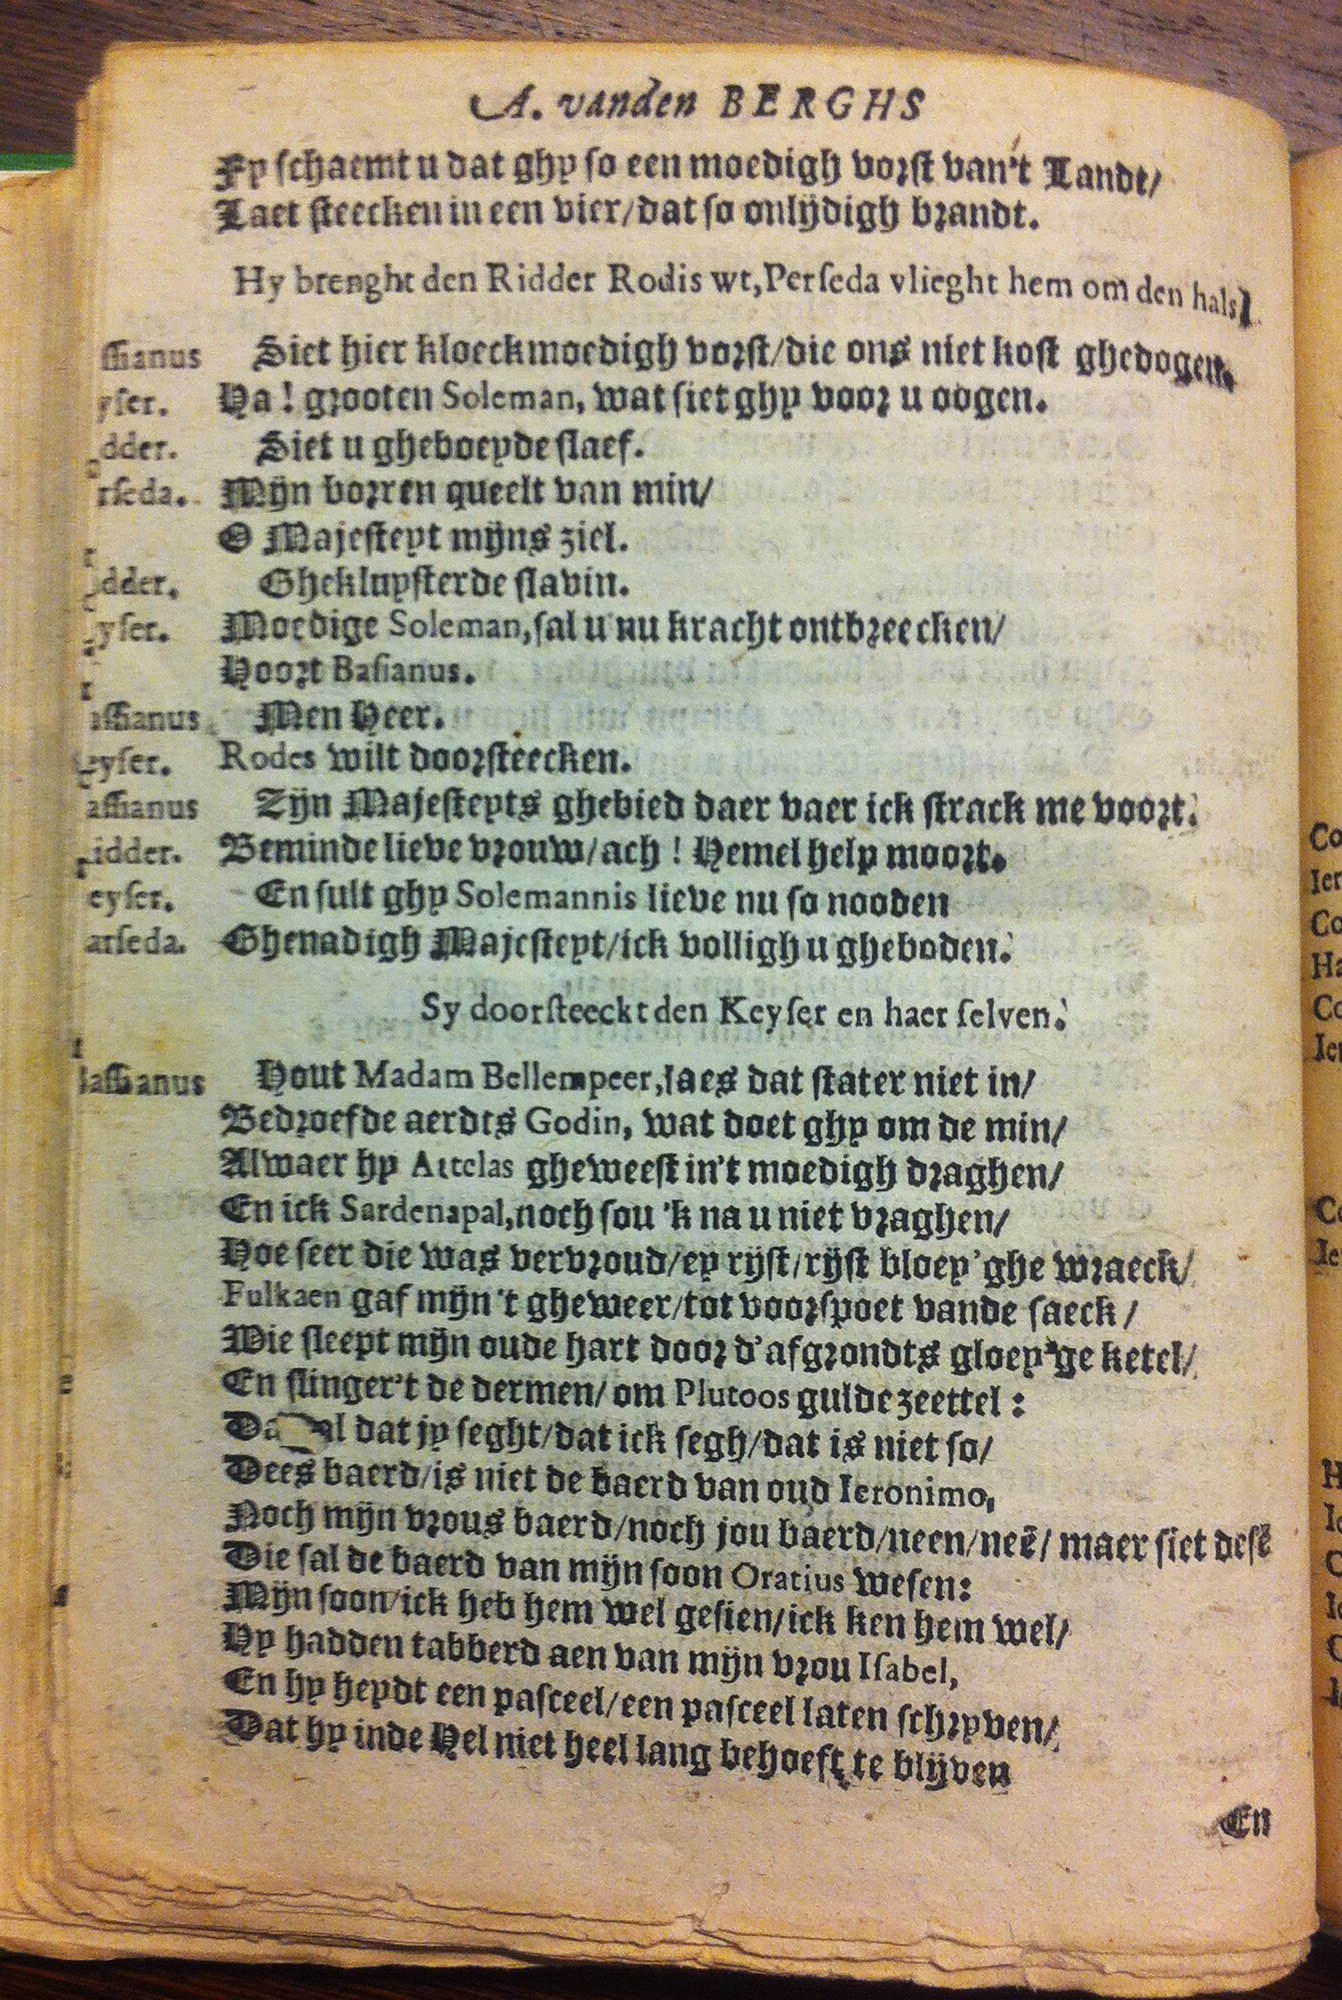 A. vanden BERGHS
Fy schaemt u dat ghy so een moedigh vorst van't Landt/
Laet steecken in een vier/dat so onlijdigh brandt.
Hy brenght den Ridder Rodis wt,Perseda vlieght hem om den hals
ssianus Siet hier kloeckmoedigh vorst/die ons niet kost ghedogen.
yser. Ha! grooten Soleman, wat siet ghy voor u oogen.
dder. Siet u gheboeyde slaef.
rseda. Mijn borren queelt van min/
O Majesteyt mijns ziel.
dder. Ghekluysterde slavin.
yser. Moedige Soleman,sal u nu kracht ontbreecken/
Hoort Basianus.
assianus Men Heer.
eyser. Rodes wilt doorsteecken.
assianus Zijn Majesteyts ghebied daer vaer ick strack me voort.
idder. Beminde lieve vrouw/ach! Hemel help moort.
eyser. En sult ghy Solemannis lieve nu so nooden
arseda. Ghenadigh Majesteyt/ick volligh u gheboden.
Sy doorsteeckt den Keyser en haer selven.
assianus Hout Madam Bellempeer,laes dat stater niet in/
Bedroefde aerdts Godin, wat doet ghy om de min/
Alwaer hy Attelas gheweest in't moedigh draghen/
En ick Sardenapal,noch sou 'k na u niet vraghen/
Hoe seer die was vervroud/ey rijst/rijst bloey'ghe wraeck/
Fulkaen gaf mijn 't gheweer/tot voorspoet vande saeck/
Die sleept mijn oude hart door d'afgrondts gloey'ge ketel/
En slinger't de dermen/om Plutoos gulde zeettel:
dat jy seght/dat ick segh/dat is niet so/
Dees baerd/is niet de baerd van oud Ieronimo,
Noch mijn vrous baerd/noch jou baerd/neen/neē/ maer siet desē
Die sal de baerd van mijn soon Oratius wesen:
Mijn soon/ick heb hem wel gesien/ick ken hem wel/
Hy hadden tabberd aen van mijn vrou Isabel,
En hy heydt een pasceel/een pasceel laten schryven/
Dat hy inde Hel niet heel lang behoeft te blijven
En
Co
Ier
Co
Ha
Co
Ier
Co
Ie
H